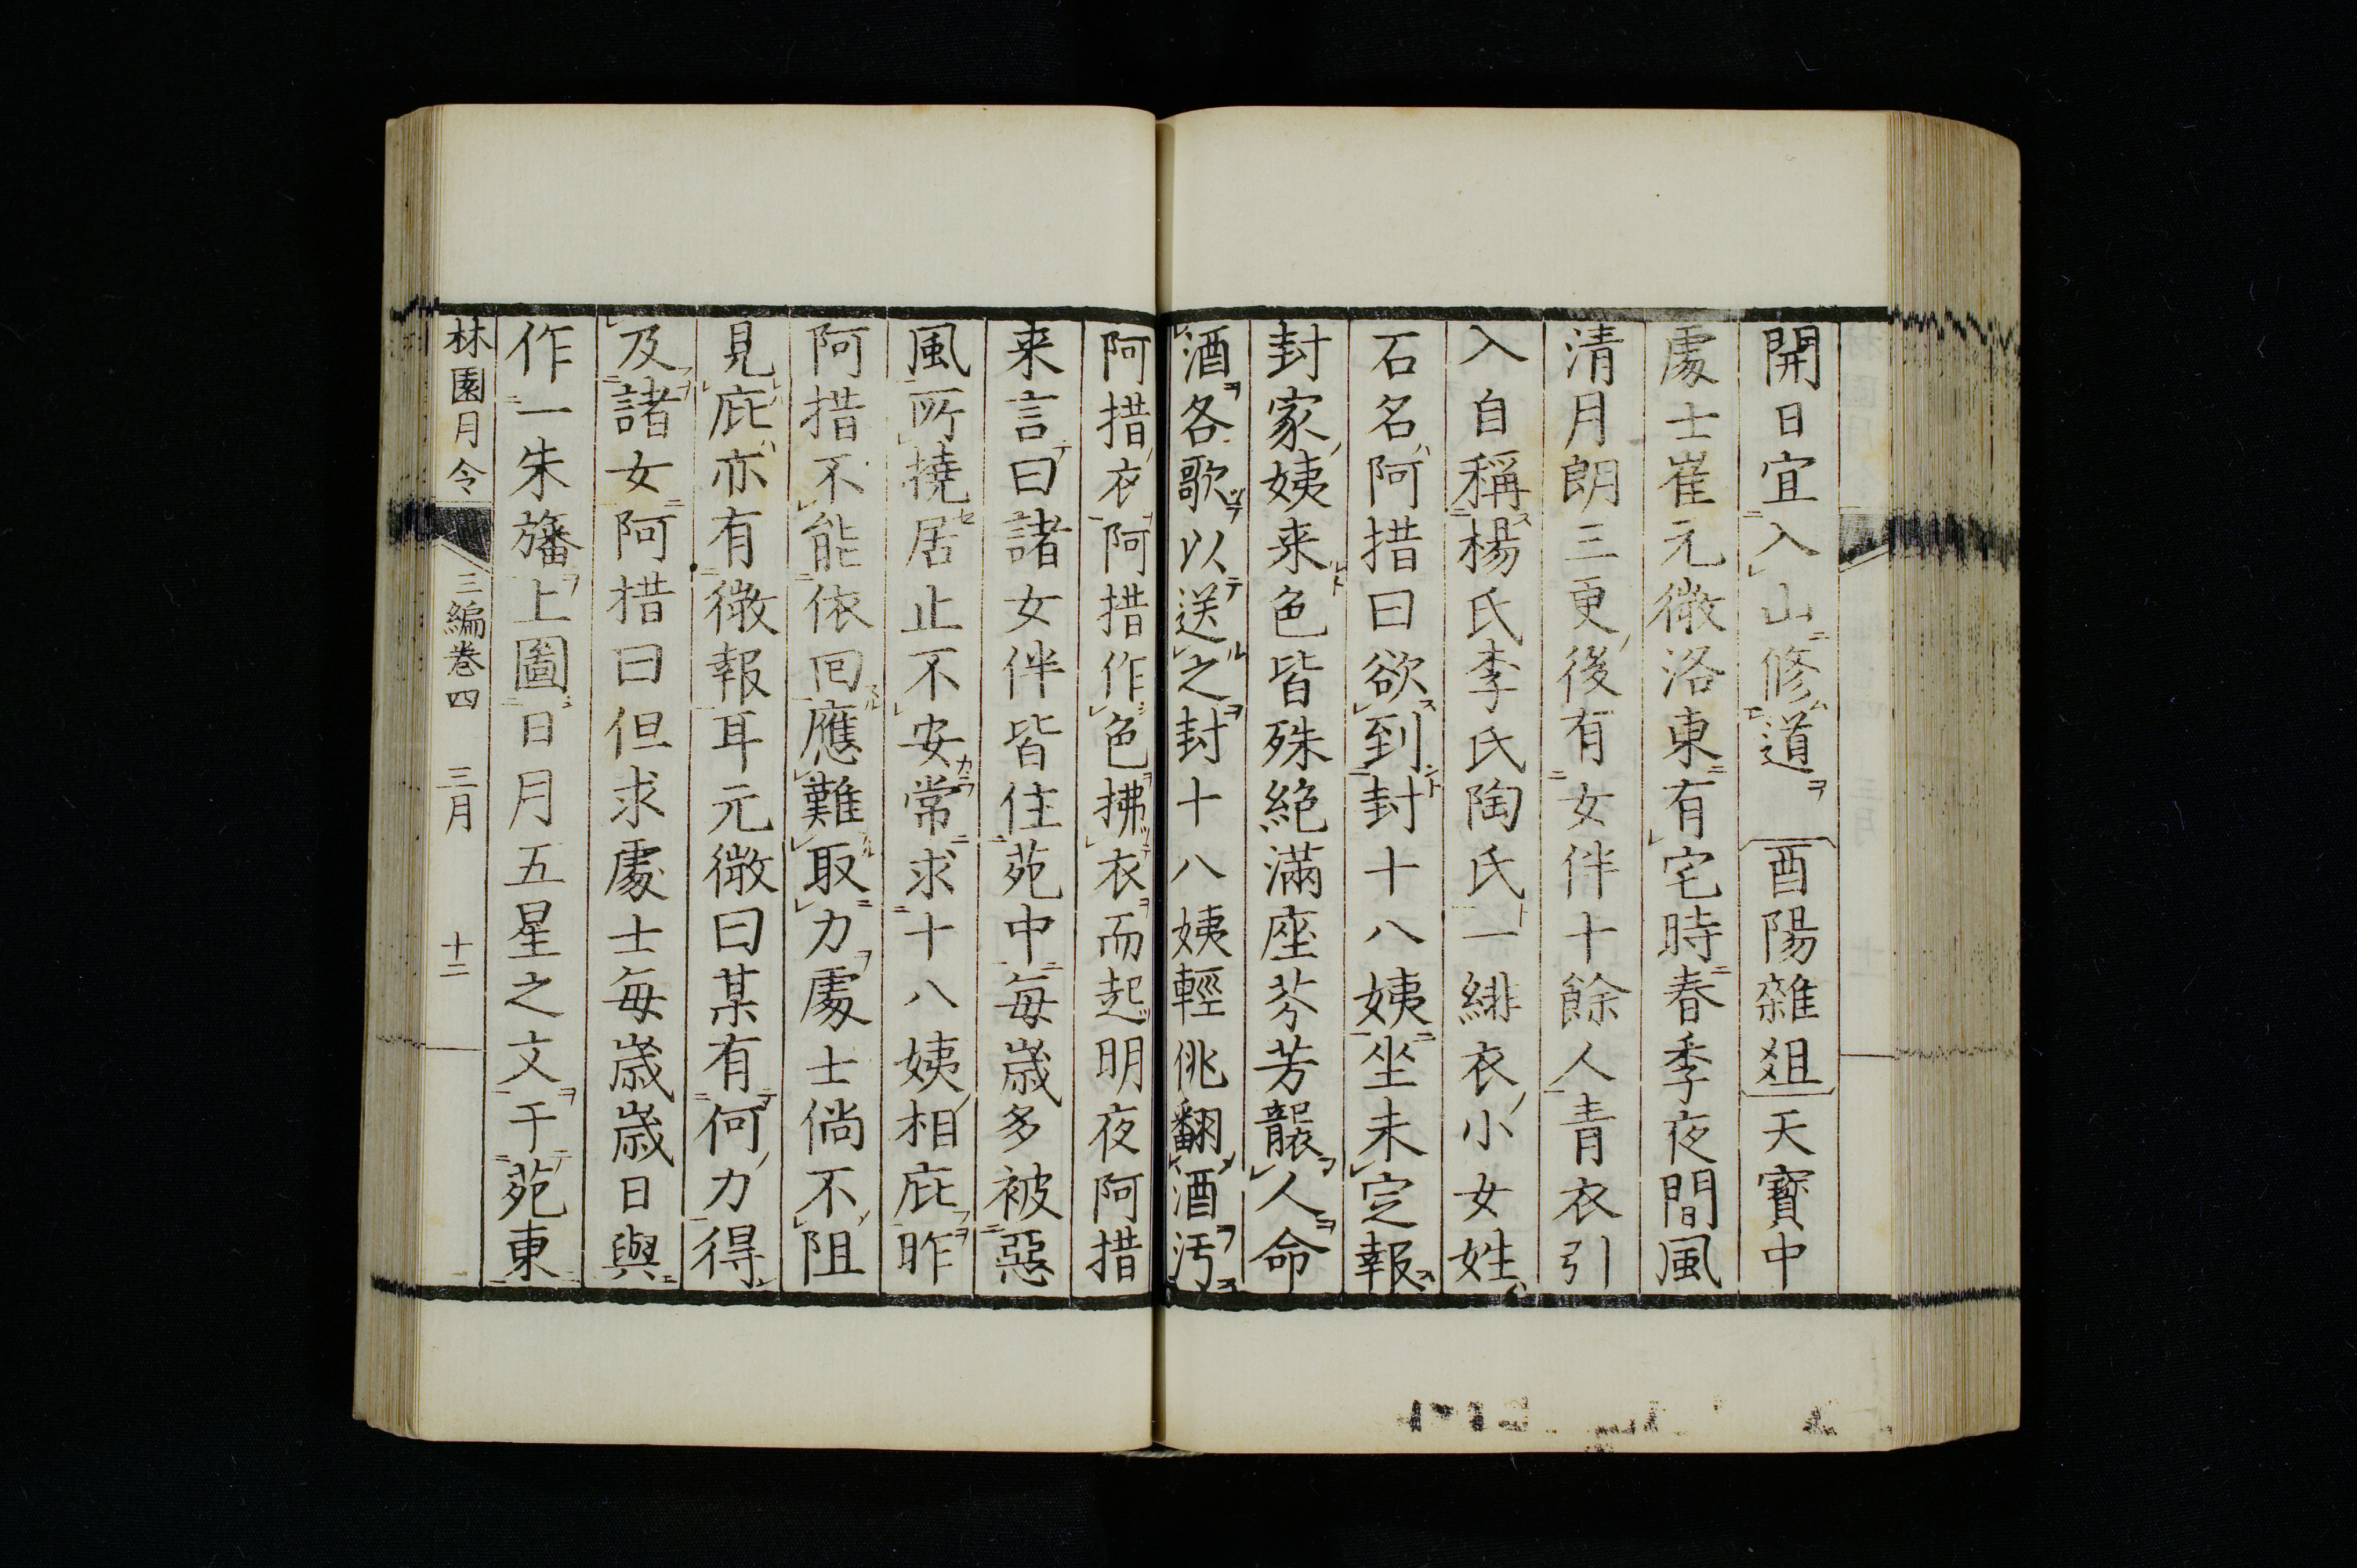 開日宜入山修道〔酉陽雜爼〕天寶中
處士崔元微洛東有宅時春季夜間風
清月朗三更後有女伴十餘人青衣引
入自稱楊氏李氏陶氏一緋衣小女姓
石名阿措曰欲到封十八姨坐未定報
封家姨来色皆殊絶滿座芬芳襲人命
酒各歌以送之封十八姨輕佻翻酒汚
阿措衣阿措作色拂衣而起明夜阿措
来言曰諸女伴皆住苑中每歲多被惡
風所撓居止不安常求十八姨相庇昨
阿措不能依回應難取力處士倘不阻
見庇亦有微報耳元微曰某有何力得
及諸女阿措曰但求處士每歲歲日與
作一朱旛上圖日月五星之文于苑東
林園月令 三編卷四 三月 十二